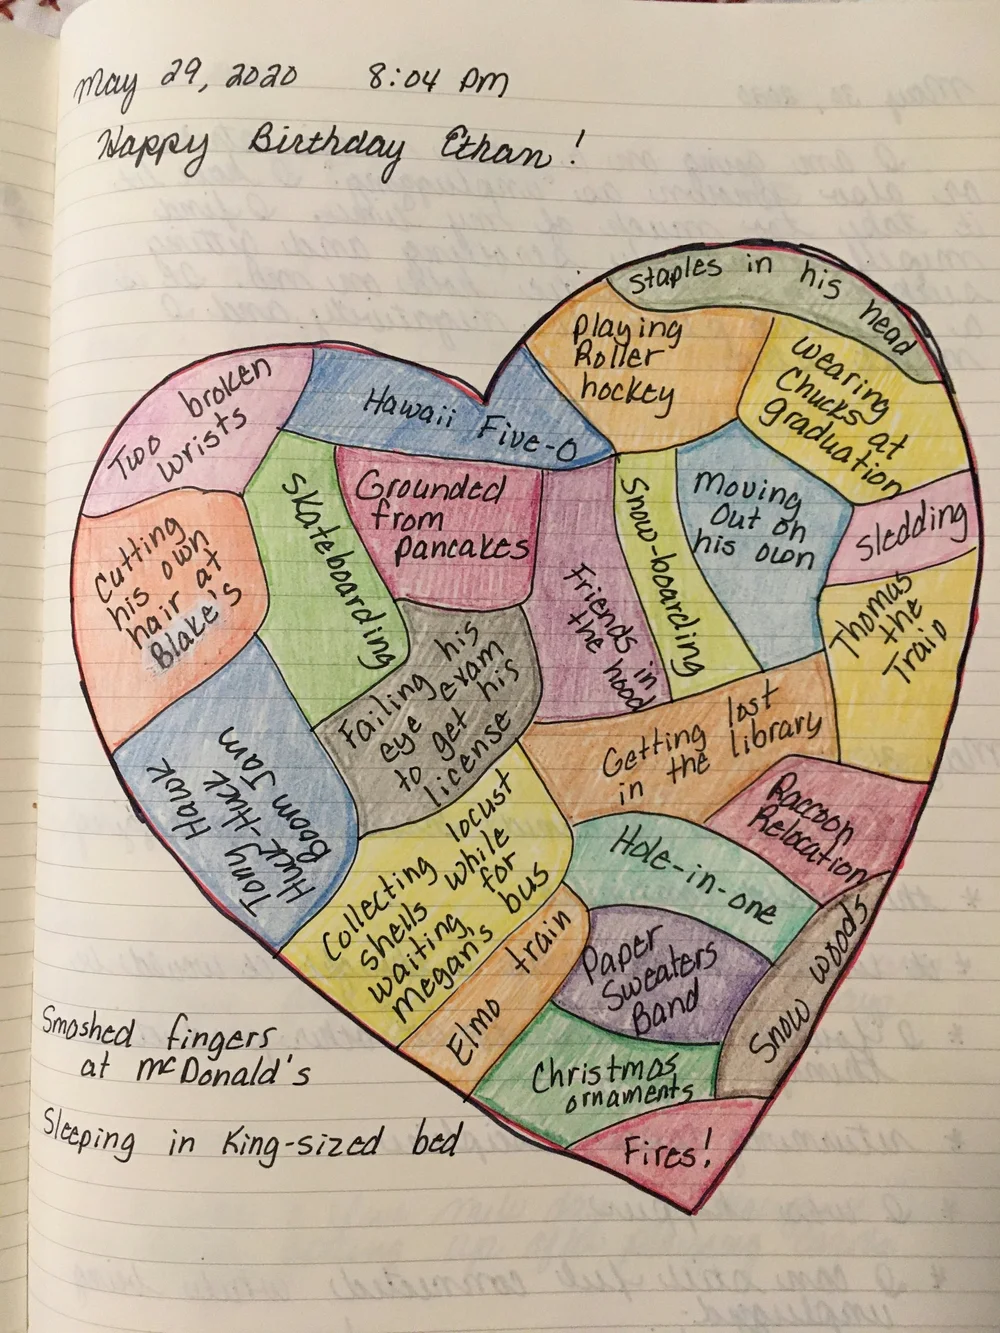 May 29, 2020 8:04 PM
Happy Birthday Ethan!
Staples in his head
Playing
Roller
hockey
wearing
Chucks at
graduation
Two broken
wrists
Hawaii Five-O
Skateboarding
Grounded
from
pancakes
Friends in
the hood
Snow-boarding
Moving
Out on
his own
Sledding
Cutting
his own
hair at
Blake's
Thomas
the
Train
Failing his
eye exam
to get his
license
Getting lost
in the library
Tony Hawk
Huck-Huck
Boom Jam
Raccoon
Relocation
Collecting locust
shells while
waiting for
Megan's bus
Hole-in-one
Elmo train
Paper
Sweaters
Band
Snow woods
Christmas
ornaments
Fires!
Smoshed fingers
at McDonald's
Sleeping in King-sized bed